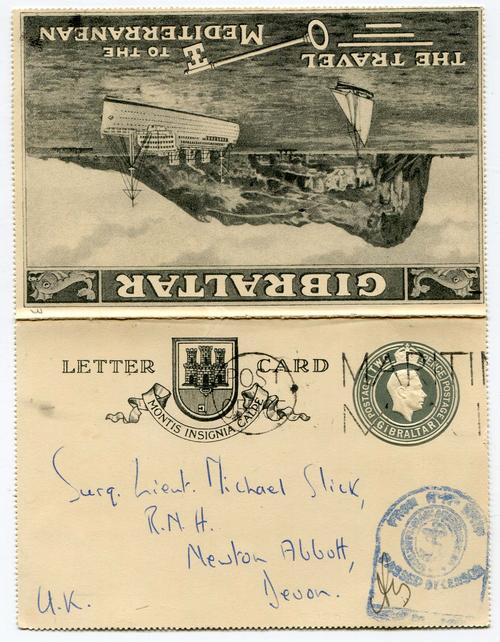 GIBRALTAR
THE TRAVEL
TO THE
MEDITERRANEAN
LETTER CARD
MONTIS INSIGNIA CALPE
POSTAGE
PENCE POSTAGE
GIBRALTAR
Surg. Lieut. Michael Slick,
R.N.H.
Newton Abbott,
Devon.
U.K.
FROM H.M. SHIP
PASSED BY CENSOR